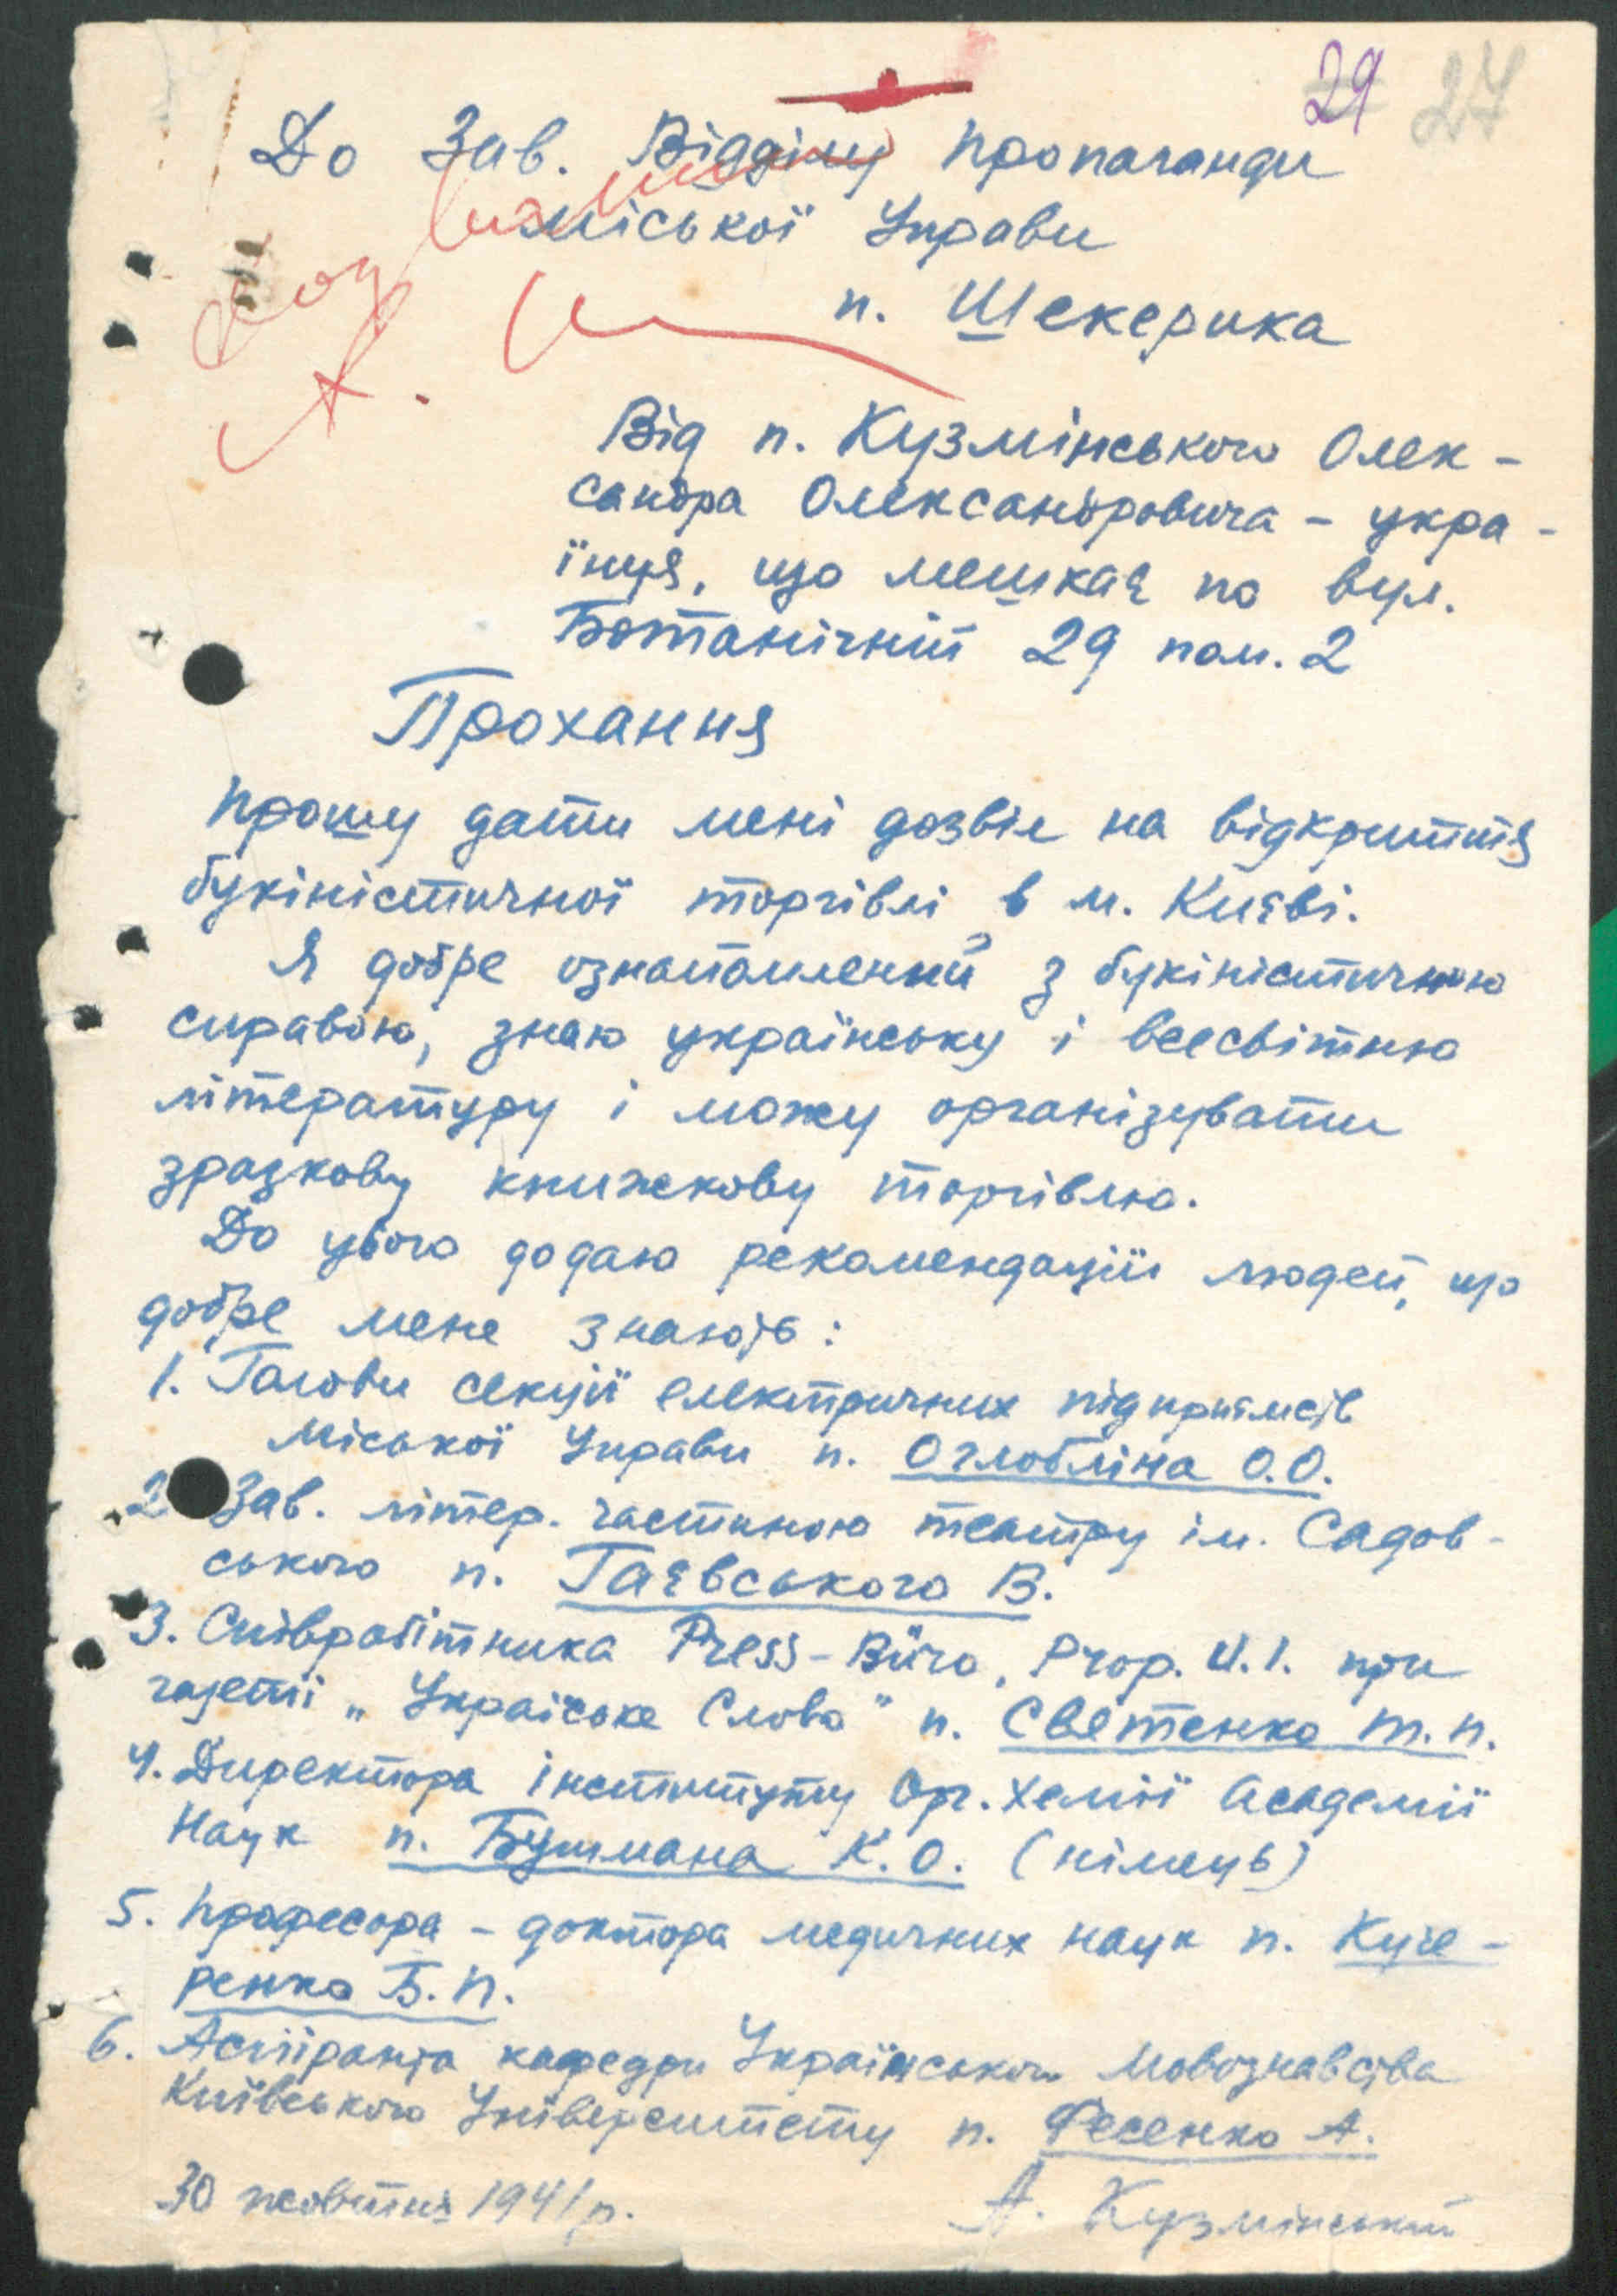 29 27
До Зав. Відділу Пропаганди
міської Управи
п. Шекерика
Від п. Кузмінського Олек-
сандра Олександровича - укра-
їнця, що мешкає по вул.
Ботанічній 29 пом. 2
Прохання
Прошу дати мені дозвіл на відкриття
букіністичної торгівлі в м. Київі.
Я добре ознайомлений з букіністичною
справою, знаю українську і всесвітню
літературу і можу організувати
зразкову книжкову торгівлю.
До цього додаю рекомендації людей, що
добре мене знають:
1. Голови секції електричних підприємств
міської Управи п. Оглобліна О.О.
2. Зав. літер. частиною театру ім. Садов-
ського п. Гаєвського В.
3. Співробітника Press-Büro, Prop. U.1. при
газеті „Украіське Слово" п. Святенко Т.П.
4. Директора інституту Орг. Хемії Академії
Наук п. Бушмана К.О. (німець)
5. Професора - доктора медичних наук п. Куче-
ренко Б.П.
6. Аспіранта кафедри Українського Мовознавства
Київського Університету п. Фесенко А.
30 жовтня 1941 р.
А. Кузмінський